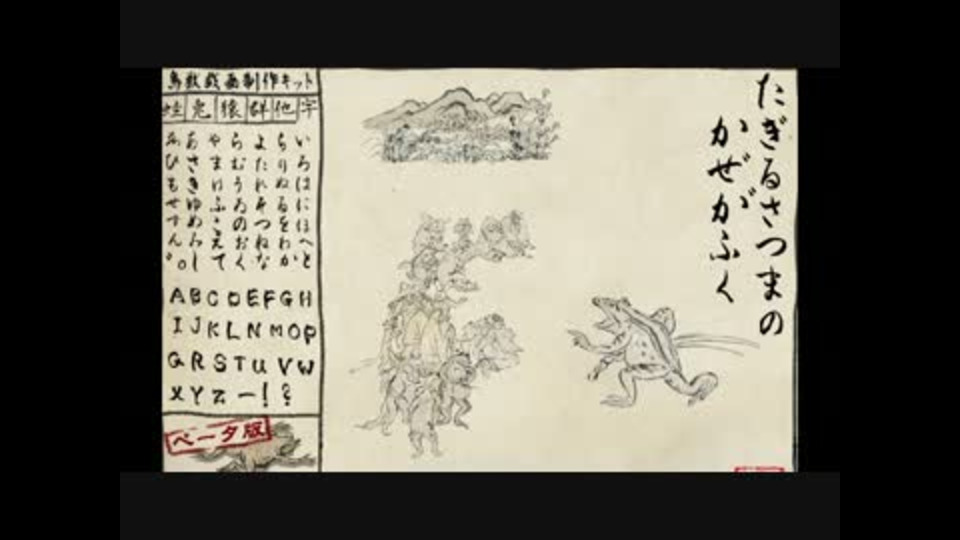 鳥獣戯画制作キット
蛙 兎 猿 群 他 字
いろはにほへと
ちりぬるをわか
よたれそつねな
らむうゐのおく
やまけふこえて
あさきゆめみし
ゑひもせすん゛゜
A B C D E F G H
I J K L N M O P
Q R S T U V W
X Y Z ー ! ?
ベータ版
たぎるさつまの
かぜがふく